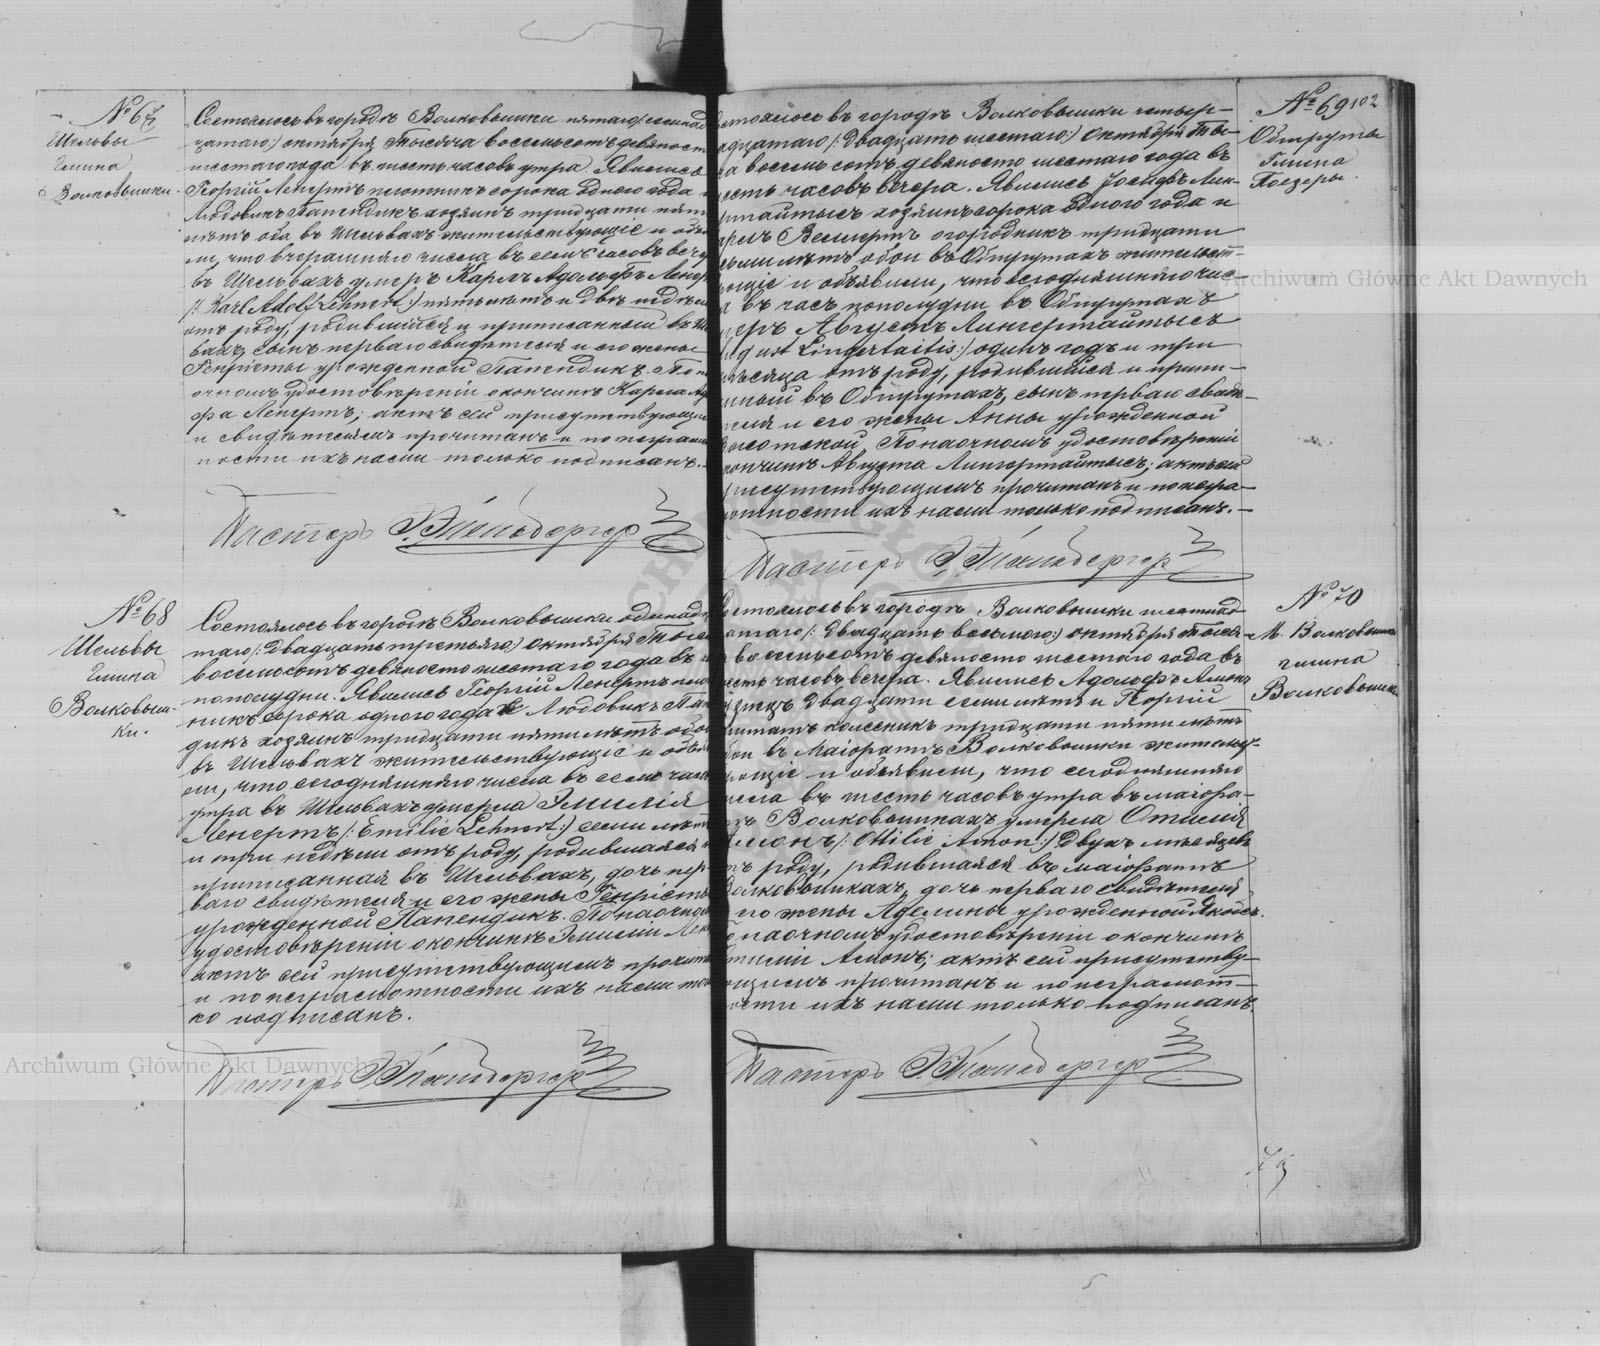 № 67
Шельвы
гмина
Волковышки.
Состоялось въ городѣ Волковышки пятаго /: семнад
цатаго:/ октября Тысяча восемьсотъ девяносто
шестаго года въ шесть часовъ утра. Явились
Георгій Ленертъ плотникъ сорока одного года
Людовикъ Папендикъ хозяинъ тридцати пяти
лѣтъ оба въ Шельвахъ жительствующіе и объя
ли, что вчерашняго числа въ семь часовъ вечера
въ Шельвахъ умеръ Карлъ Адольфъ Ленер
/: Karl Adolf Lehnert:/ пять лѣтъ и двѣ недѣли
отъ роду, родившійся и приписанный въ Ше
вахъ, сынъ перваго свидѣтеля и его жены
Генріеты урожденной Папендикъ. По на
очномъ удостовѣреніи о кончинѣ Карла Адо
фа Ленертъ; актъ сей присутствующимъ
и свидѣтелямъ прочитанъ и по неграмот
ности ихъ нами только подписанъ.
Пасторъ
№ 68
Шельвы
гмина
Волковыш-
ки.
Состоялось въ городѣ Волковышки одинадца
таго /: Двадцать третьяго:/ октября Тысяч
восемьсотъ девяносто шестаго года въ
пополудни. Явились Георгій Ленертъ плот
никъ сорока одного года и Людовикъ Папен
дикъ хозяинъ тридцати пяти лѣтъ обои
въ Шельвахъ жительствующіе и объяв
ли, что сегодняшняго числа въ семь часов
утра въ Шельвахъ умерла Эмилія
Ленертъ /: Emilie Lehnert:/ семи лѣтъ
и три недѣли отъ роду, родившаяся и
приписанная въ Шельвахъ, дочь пер-
ваго свидѣтеля и его жены Генріеты
урожденной Папендикъ. По наочном
удостовѣреніи о кончинѣ Эмиліи Лен
актъ сей присутствующимъ прочита
и по неграмотности ихъ нами толь
ко подписанъ.
Пасторъ
№ 69 102
Обшруты
Гмина
Поезеры.
стоялось въ городѣ Волковышки четыр-
адцатаго /: Двадцать шестаго:/ Октября Ты-
ча восемь сотъ девяносто шестаго года въ
есть часовъ вечера. Явились Іосифъ Лин-
ертайтысъ хозяинъ сорока одного года и
арлъ Веллертъ огородникъ тридцати
семи лѣтъ обои въ Обшрутахъ жительст-
ующіе и объявили, что сегодняшняго чис-
а въ часъ пополудни въ Обшрутахъ
меръ Августъ Лингертайтысъ
ugust Lingertaitis:/ одинъ годъ и три
мѣсяца отъ роду, родившійся и припи-
анный въ Обшрутахъ, сынъ перваго свидѣ-
теля и его жены Анны урожденной
отской. По наочномъ удостовѣреніи
кончинѣ Августа Лингертайтысъ; актъ сей
рисутствующимъ прочитанъ и по негра-
мотности ихъ нами только подписанъ.
Пасторъ
№ 70
М. Волковышки
гмина
Волковышки
стоялось въ городѣ Волковышки шестнад
цатаго /: Двадцать восьмого:/ октября Тысяч
восемьсотъ девяносто шестаго года въ
есть часовъ вечера. Явились Адольфъ Амонъ
узнецъ двадцати семи лѣтъ и Георгій
колесникъ тридцати пяти лѣтъ
бои въ Маіоратѣ Волковышки жительст-
ующіе и объявили, что сегодняшняго
исла въ шесть часовъ утра въ маіора-
тѣ Волковышкахъ умерла Отилія
Амонъ /: Otilie Amon:/ двухъ мѣсяцевъ
тъ роду, родившаяся въ маіоратѣ
Волковышкахъ, дочь перваго свидѣтеля
его жены Аделины урожденной
По наочномъ удостовѣреніи о кончинѣ
тиліи Амонъ; актъ сей присутству-
ющимъ прочитанъ и по неграмот-
ности ихъ нами только подписанъ.
Пасторъ
Archiwum Główne Akt Dawnych
Archiwum Główne Akt Dawnych